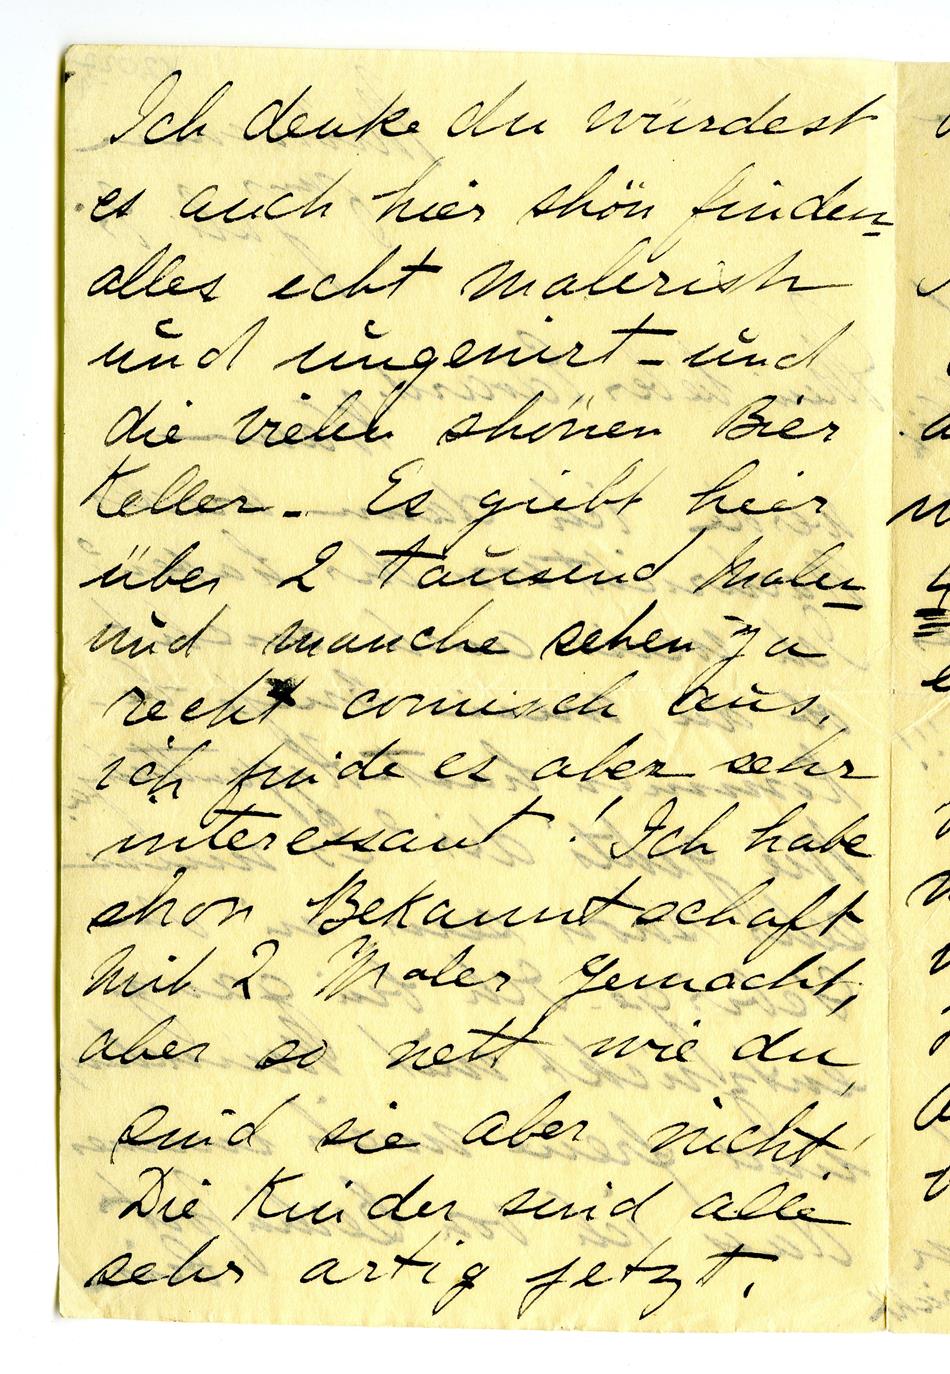 Ich denke du würdest
es auch hier shön finden
alles echt malerish
und ungenirt – und
die vielen shönen Bier
Keller – Es giebt hier
über 2 tausend Maler
und manche sehen ja
recht comisch aus,
ich finde es aber sehr
interessant! Ich habe
shon Bekanntschaft
mit 2 Maler gemacht,
aber so nett wie du
sind sie aber nicht!
Die Kinder sind alle
sehr artig jetzt.